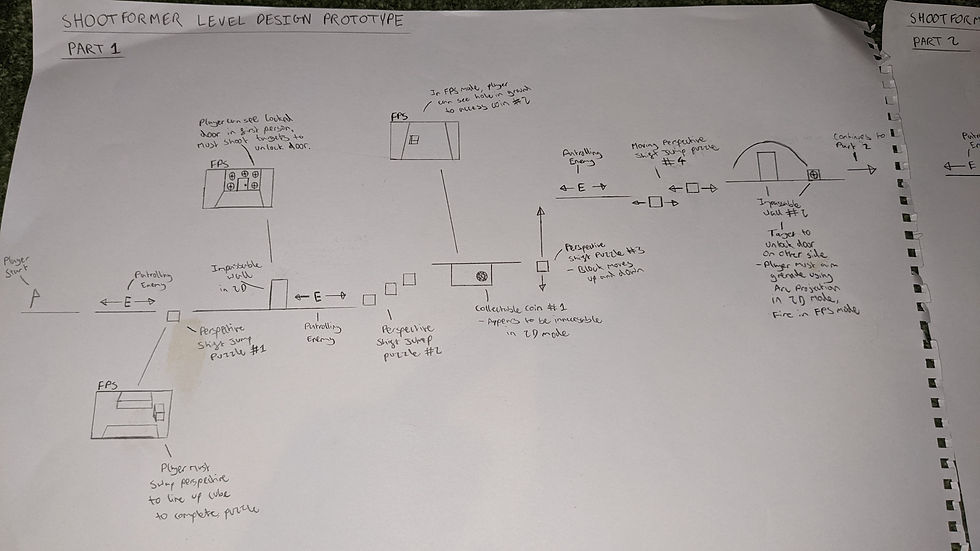 SHOOTFORMER LEVEL DESIGN PROTOTYPE
PART 1
SHOOTFORM
PART 2
In FPS mode, player
can see hole in ground
to access coin #2
FPS
Player can see locked
door in first person,
must shoot targets to
unlock door.
FPS
Patrolling
Enemy
E
Moving Perspective
Shift Jump puzzle
#4
Continues to
Part 2
Patro
En
E
Player
Start
Patrolling
Enemy
E
Impassable
Wall
in 2D
E
Patrolling
Enemy
Perspective
Shift Jump
puzzle #1
Perspective
Shift Jump
puzzle #2
Collectable Coin #1
- Appears to be inaccessible
in 2D mode
Perspective
Shift Puzzle #3
- Block moves
up and down
Impassable
Wall #2
Target to
unlock door
on other side
- Player must aim
grenade using
Arc Projection
in 2D mode,
Fire in FPS mode
FPS
Player must
Swap perspective
to line up cube
to complete puzzle